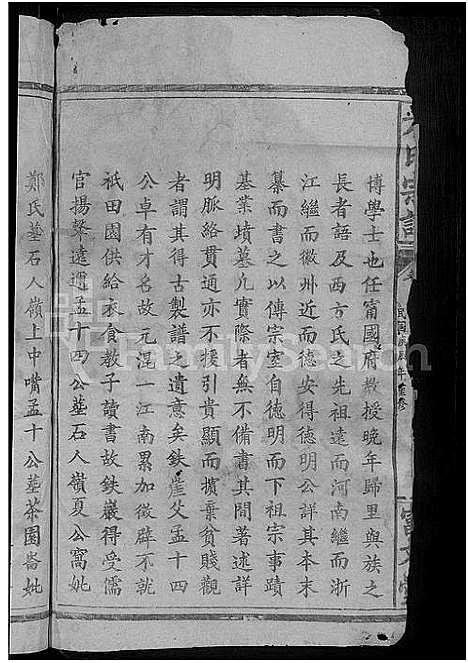 博學士也任甯國府教授晚年歸里與族之
長者語及西方氏之先祖遠而河南繼而浙
江繼而徽州近而德安得德明公詳其本末
纂而書之以傳宗室自德明而下祖宗事蹟
基業墳墓凡實際者無不備書其間著述詳
明脉絡貫通亦不援引貴顯而擯棄貧賤觀
者謂其得古製譜之遺意矣鉄崖父孟十四
公卓有才名故元混一江南累加徵辟不就
祇田園供給衣食教子讀書故鉄巖得受儒
官揚聲遠邇孟十四公墓石人嶺夏公窩妣
鄭氏墓石人嶺上中嘴孟十公墓茶園崙妣
氏宗譜
民國戊辰年重修
FamilySearch